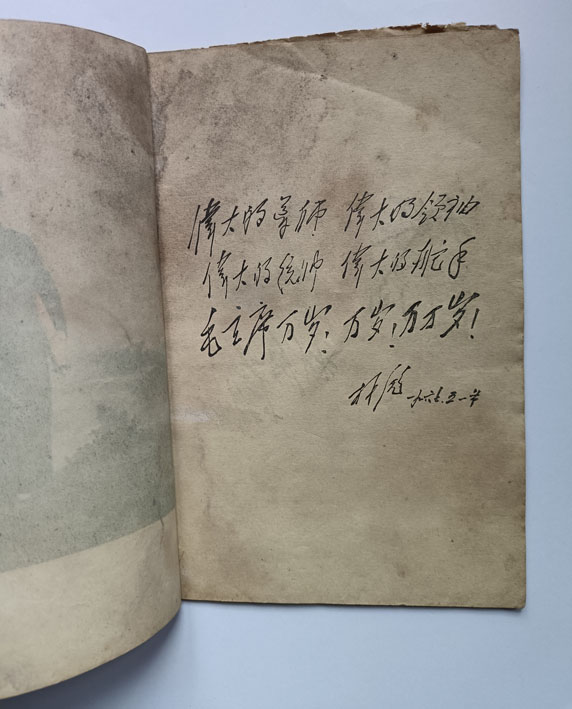 偉大的导师 偉大的领袖
偉大的统帅 偉大的舵手
毛主席万岁！万岁！万万岁！
林彪 一九六七.五.一芳